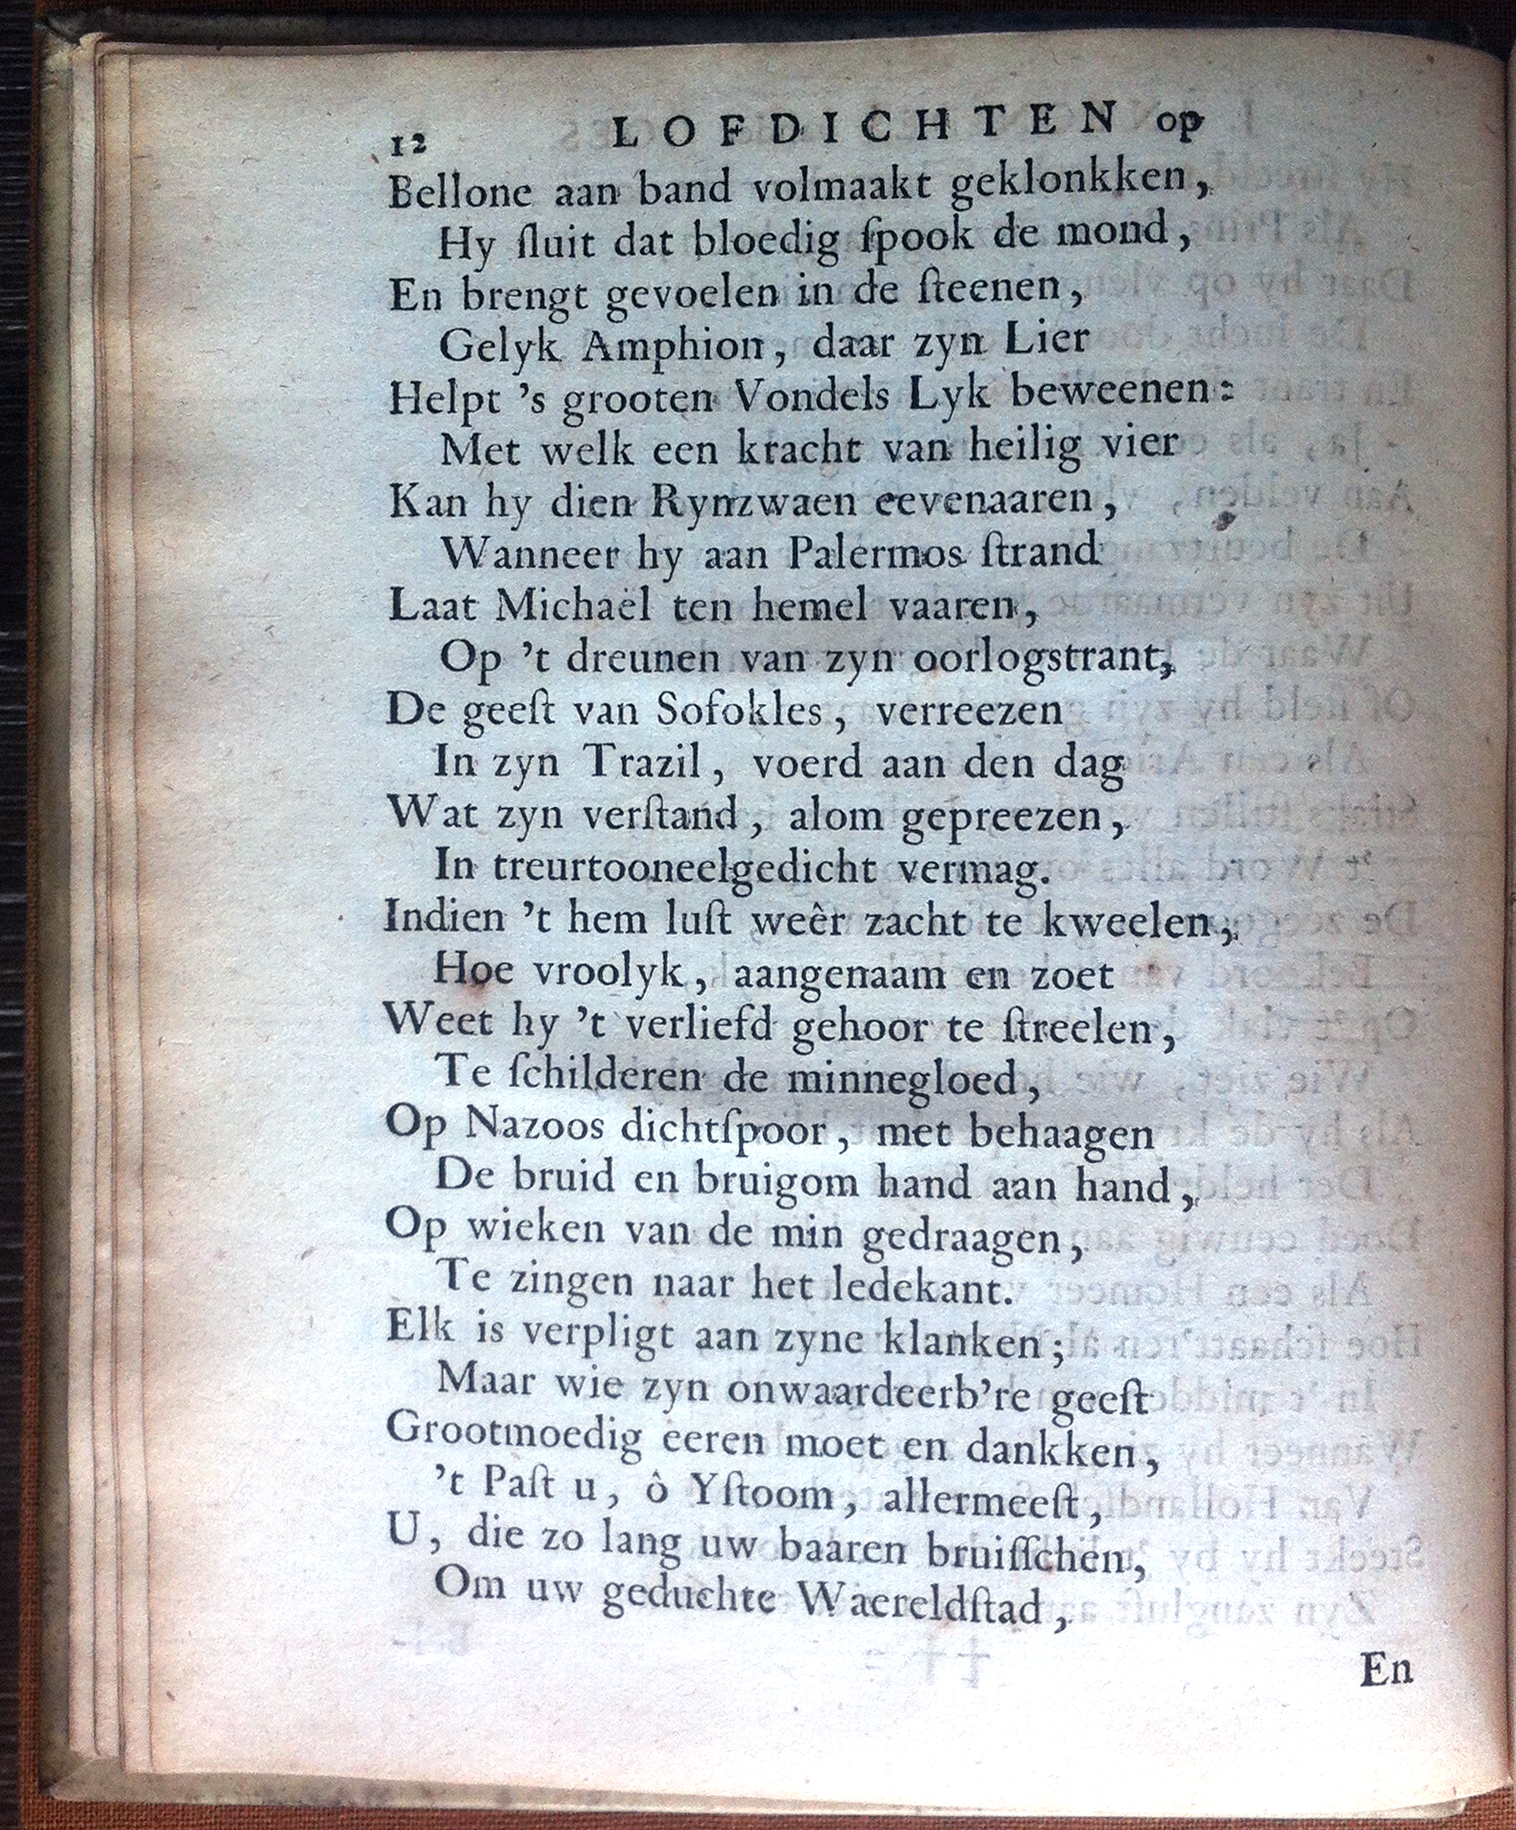 12 LOFDICHTEN op
Bellone aan band volmaakt geklonkken,
Hy ſluit dat bloedig ſpook de mond,
En brengt gevoelen in de ſteenen,
Gelyk Amphion, daar zyn Lier
Helpt 's grooten Vondels Lyk beweenen:
Met welk een kracht van heilig vier
Kan hy dien Rynzwaen eevenaaren,
Wanneer hy aan Palermos ſtrand
Laat Michaël ten hemel vaaren,
Op 't dreunen van zyn oorlogstrant,
De geeſt van Sofokles, verreezen
In zyn Trazil, voerd aan den dag
Wat zyn verſtand, alom gepreezen,
In treurtooneelgedicht vermag.
Indien 't hem luſt weêr zacht te kweelen,
Hoe vroolyk, aangenaam en zoet
Weet hy 't verliefd gehoor te ſtreelen,
Te ſchilderen de minnegloed,
Op Nazoos dichtſpoor, met behaagen
De bruid en bruigom hand aan hand,
Op wieken van de min gedraagen,
Te zingen naar het ledekant.
Elk is verpligt aan zyne klanken;
Maar wie zyn onwaardeerb're geeſt
Grootmoedig eeren moet en dankken,
't Paſt u, ô Yſtoom, allermeeſt,
U, die zo lang uw baaren bruiſſchen,
Om uw geduchte Waereldſtad,
En